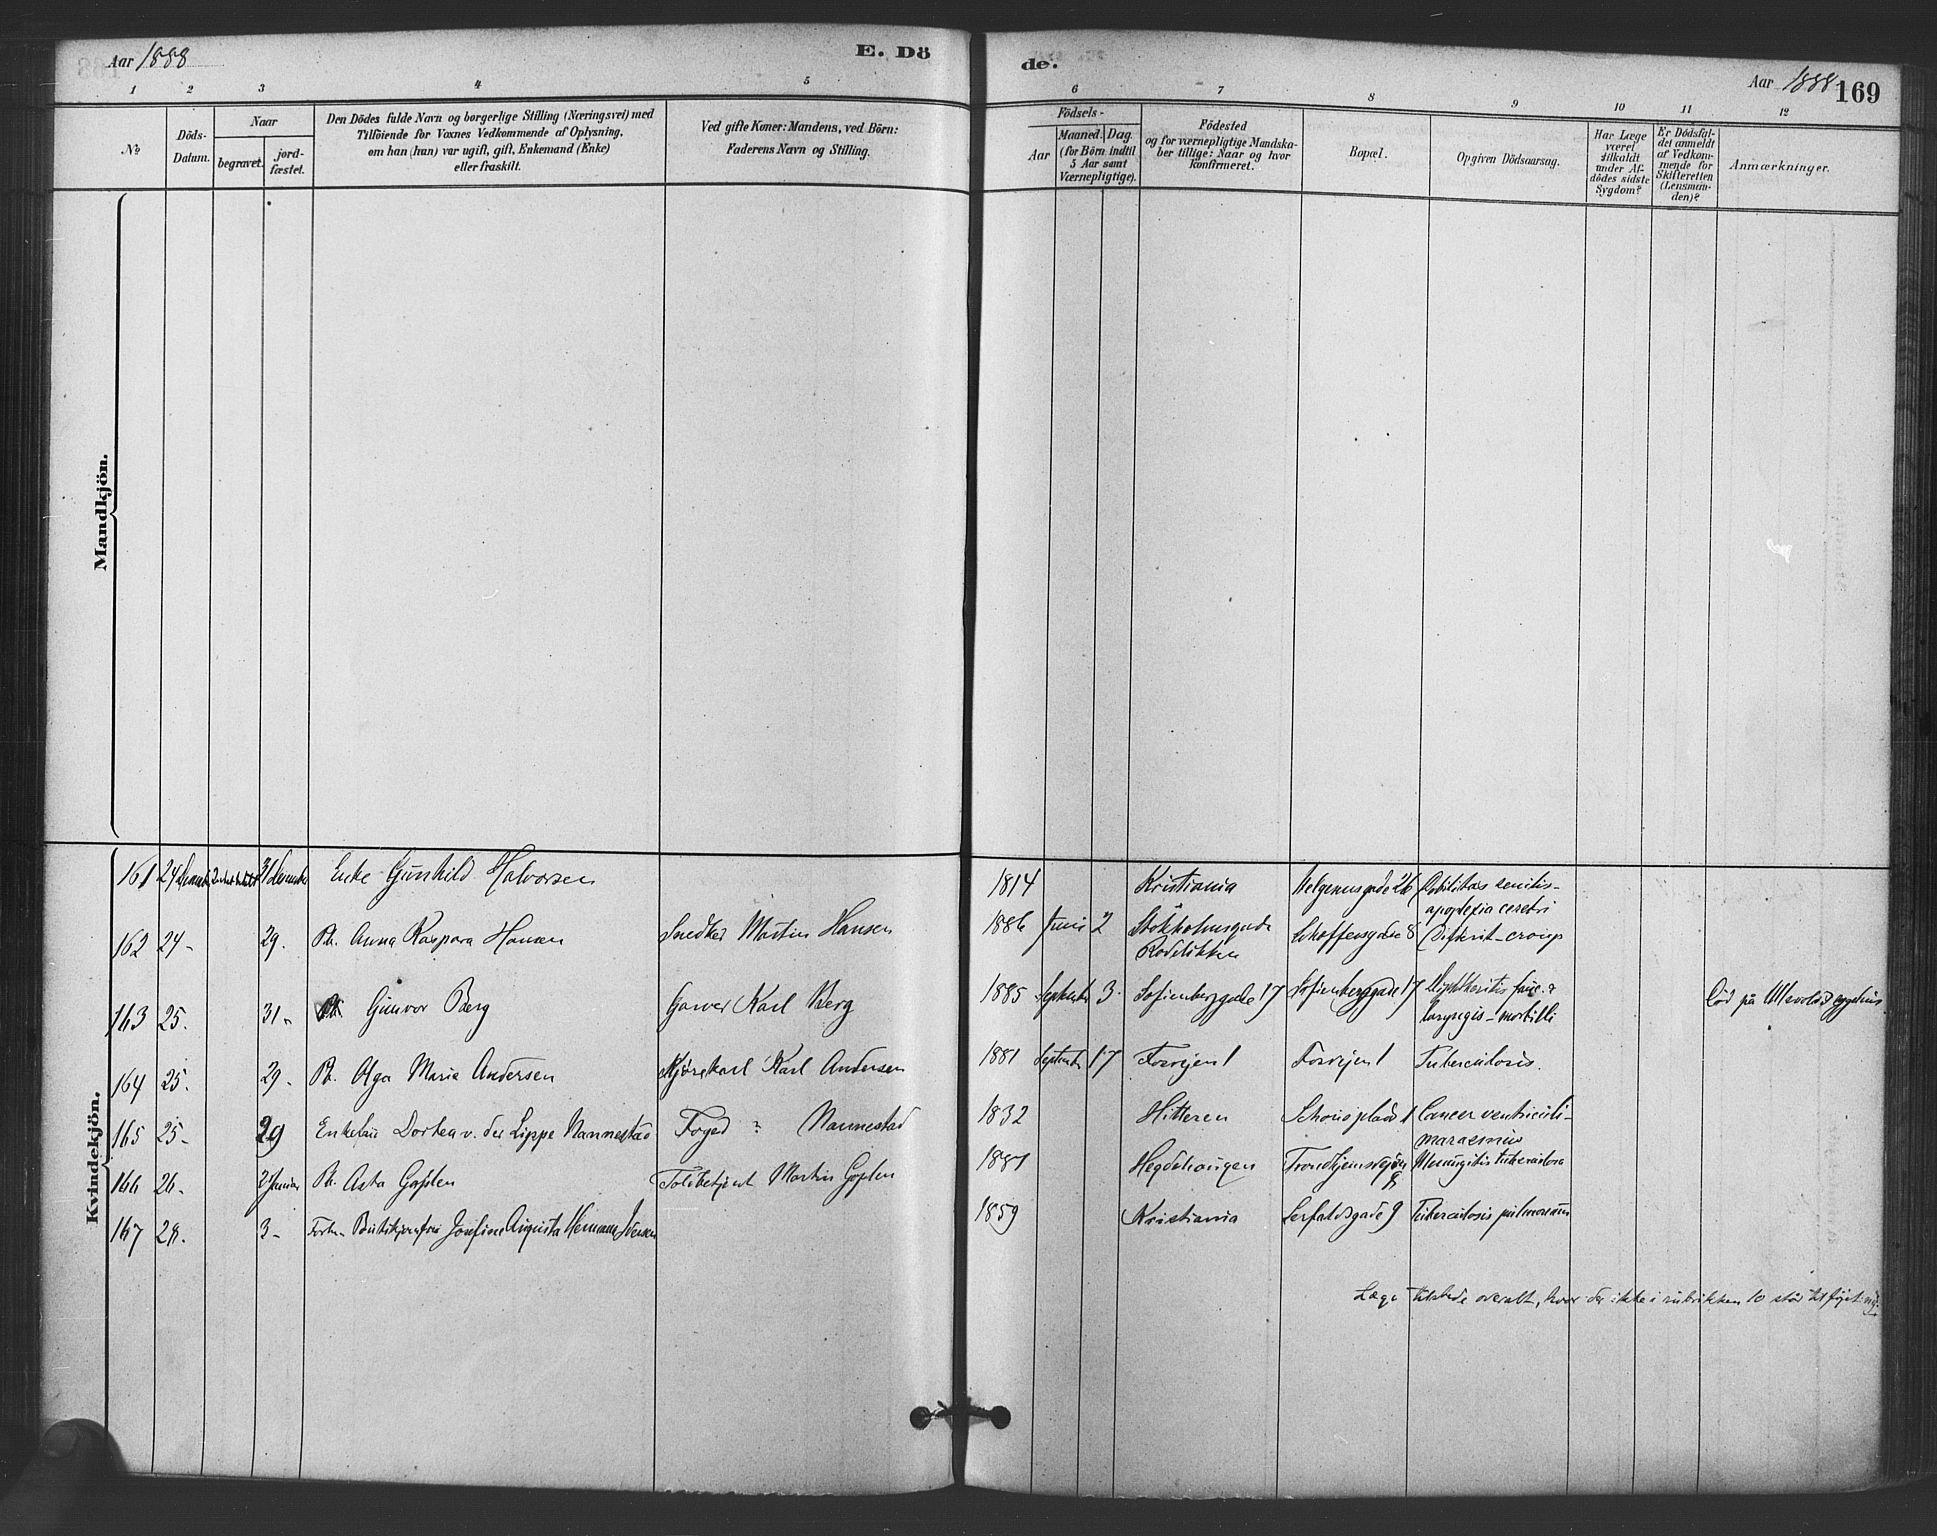 Aar 1888
E. Dö
de.
Aar 1888
169
1 2 3 4 5
6 7 8 9 10 11 12
No.
Döds-
Datum.
Naar
begravet.
jord-
fæstet.
Den Dödes fulde Navn og borgerlige Stilling (Næringsvei) med
Tilföiende for Voxnes Vedkommende af Oplysning,
om han (hun) var ugift, gift, Enkemand (Enke)
eller fraskilt.
Ved gifte Koner: Mandens, ved Börn:
Faderens Navn og Stilling.
Födsels-
Aar
Maaned. Dag.
(for Börn indtil
5 Aar samt
Værnepligtige).
Födested
og for værnepligtige Mandska-
ber tillige: Naar og hvor
konfirmeret.
Bopæl.
Opgiven Dödsaarsag.
Har Læge
været
tilkaldt
under Af-
dödes sidste
Sygdom?
Er Dödsfal-
det anmeldt
af Vedkom-
mende for
Skifteretten
(Lensman-
den)?
Anmærkninger.
Mandkjön.
Kvindekjön.
161 24 31 Enke Gunhild Halvorsen 1814 Kristiania Helgensgade 26 Debilitas senilis-
apoplexia cerebri
162 24- 29. Pb. Anna Kaspara Hansen Snedker Martin Hansen 1886 Juni 2 Stokholmsgade Schoffensgade 8 Difterit-croup
Rodeløkken
163 25. 31- Gunvor Berg Garver Karl Berg 1885 September 3. Sofienberggade 17 Sofienberggade 17 Diphtheritis fauc. &
laryngis-morbilli død på Ullevold sygehus
164 25. 29- Pb. Olga Maria Andersen Kjørekarl Karl Andersen 1881 September 17 Forvejen 1 Forvejen 1 Tuberculosis.
165 25- 29 Enkefru Dortea v. der Lippe Nannestad Foged ? Nannestad 1832 Hitteren Schous plads 1 Cancer ventriculi-
marasmus
166 26- 2 Januar Pb. Asta Goplen Tolbetjent Martin Goplen 1887 Hegdehaugen Trondhjemsvejen Meningitis tuberculosa
8
167 28. 3- Josefine Augusta Hermana Iversen 1859 Kristiania Herfaldsgade 9 Tuberculosis pulmonum
Læge tilstede overalt, hvor der ikke i rubrikken 10 står tilføjet nej.